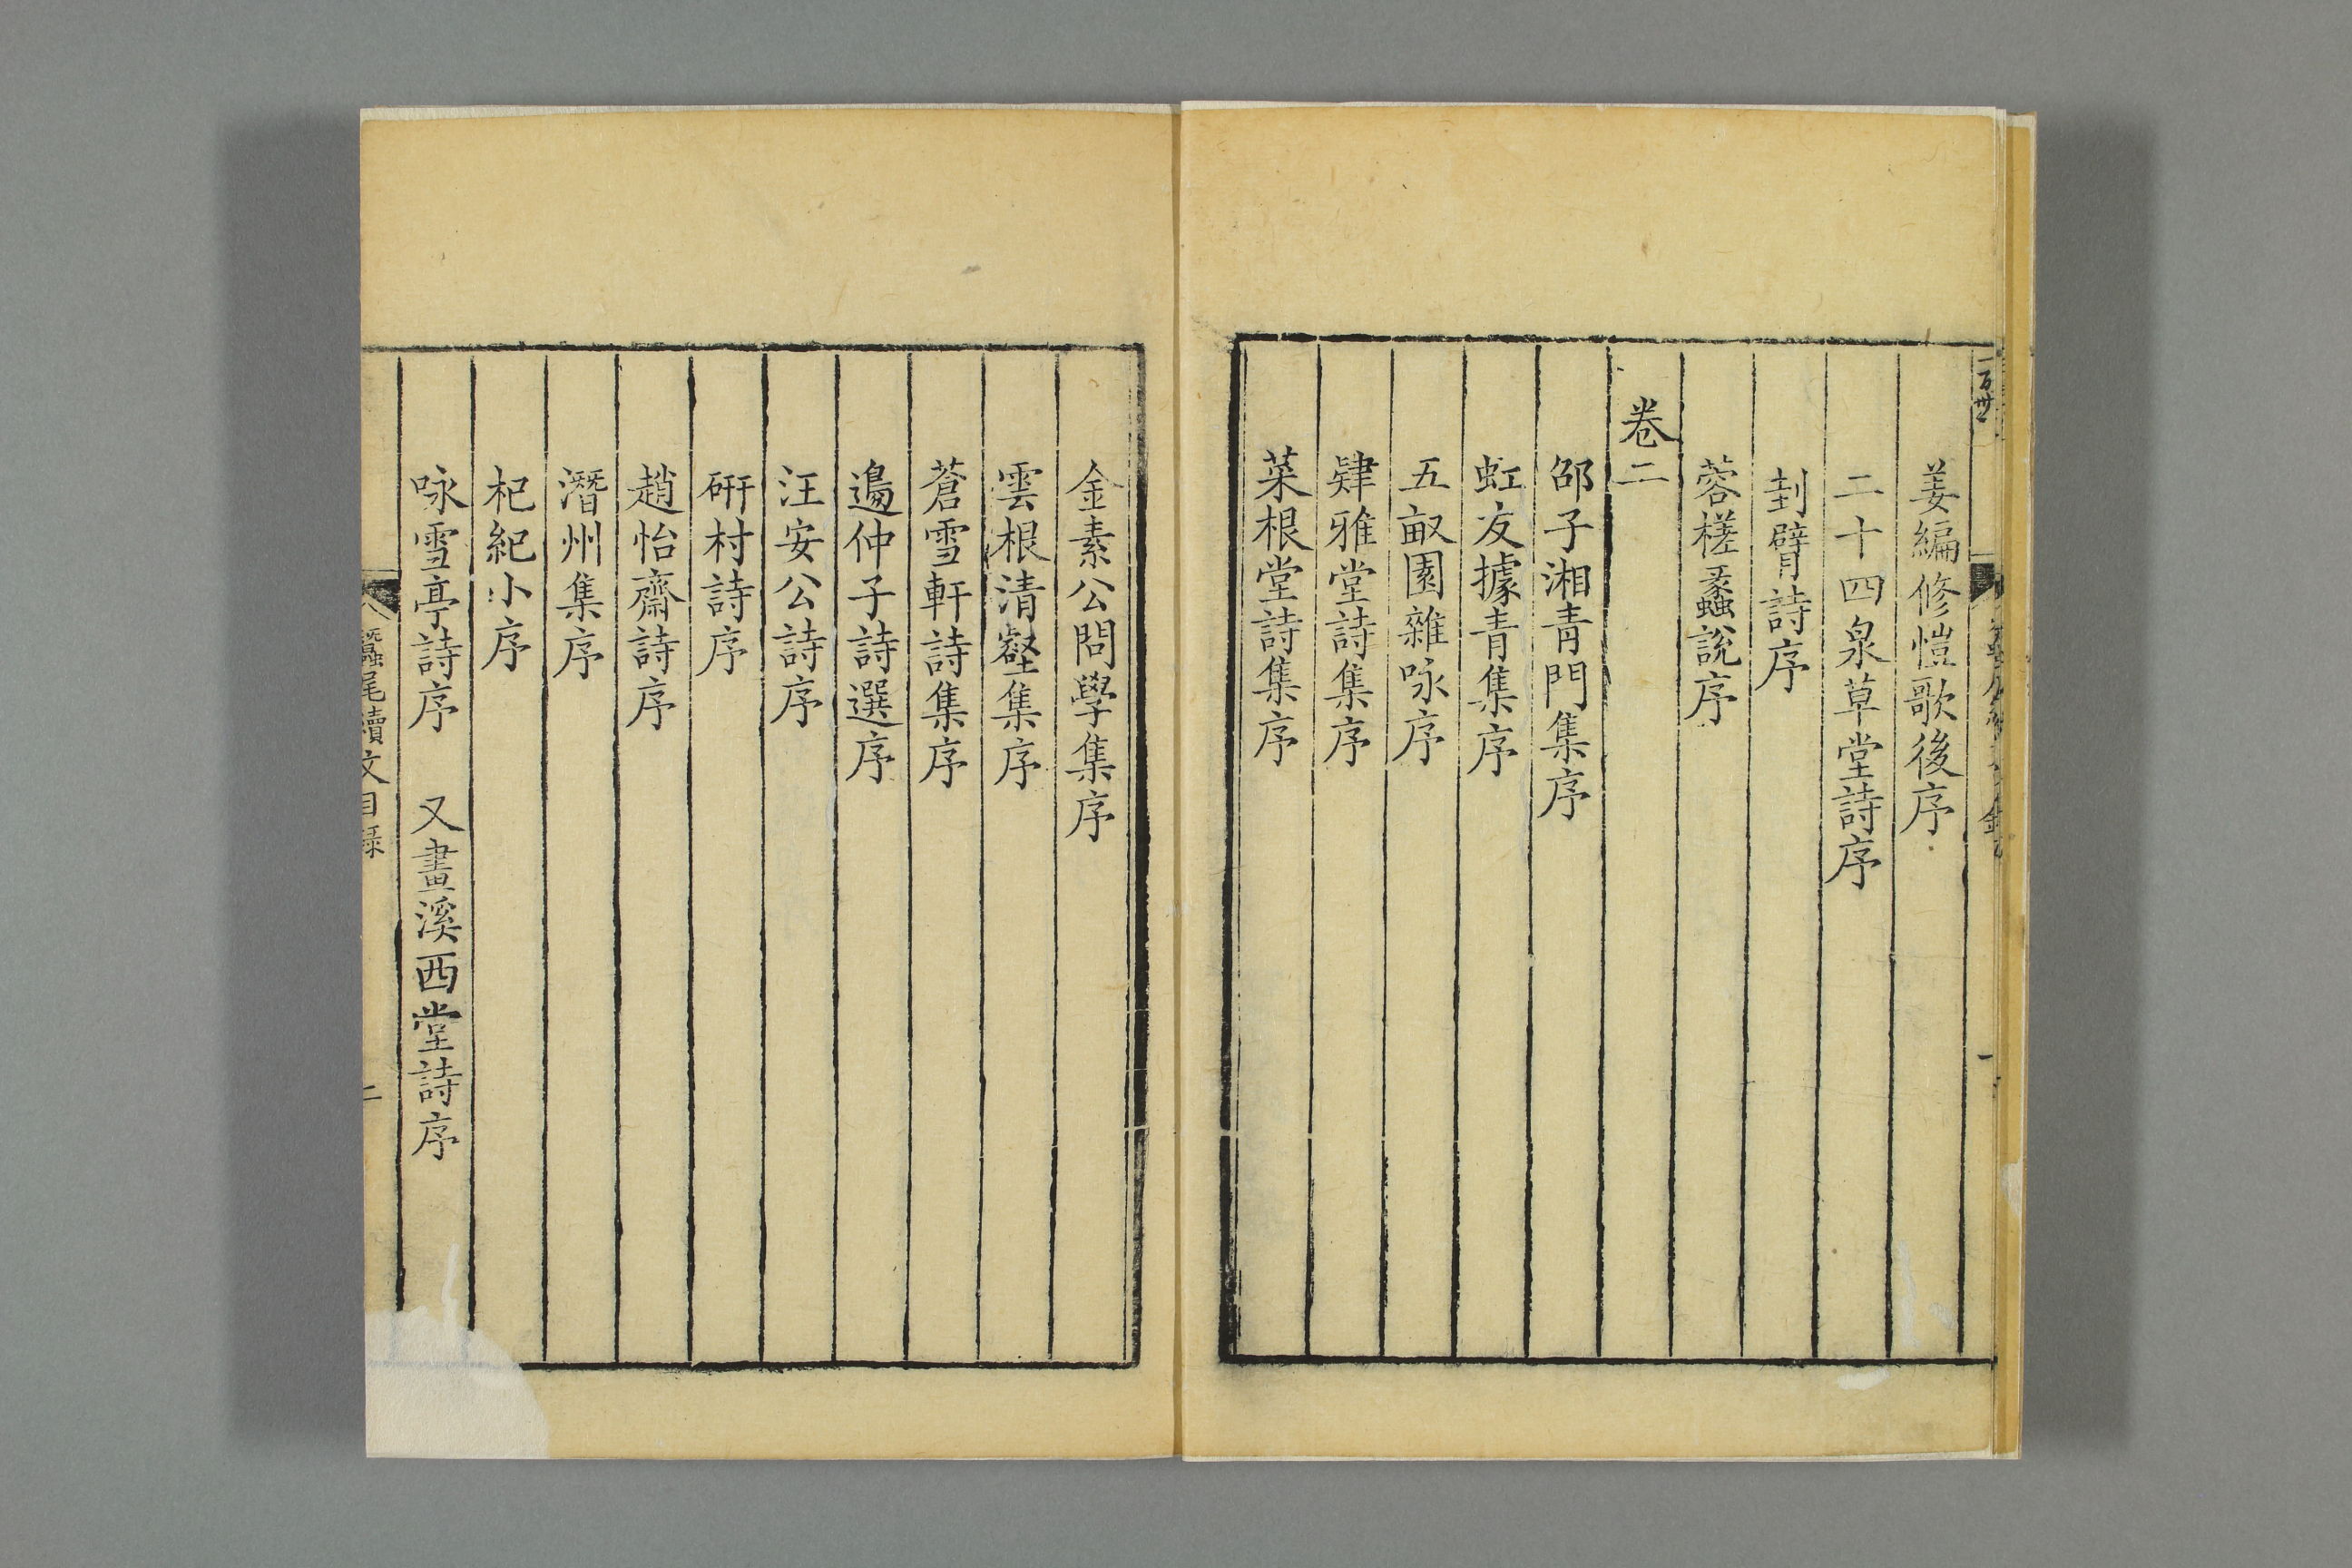 姜編修愷歌後序
二十四泉草堂詩序
刲臂詩序
蓉槎蠡說序
卷二
邵子湘青門集序
虹友據青集序
五畝園雜咏序
肄雅堂詩集序
菜根堂詩集序
金素公問學集序
雲根清壑集序
蒼雪軒詩集序
邊仲子詩選序
汪安公詩序
硏村詩序
趙怡齋詩序
潛州集序
杞紀小序
咏雪亭詩序　又畫溪西堂詩序
蠶尾續文目録
二